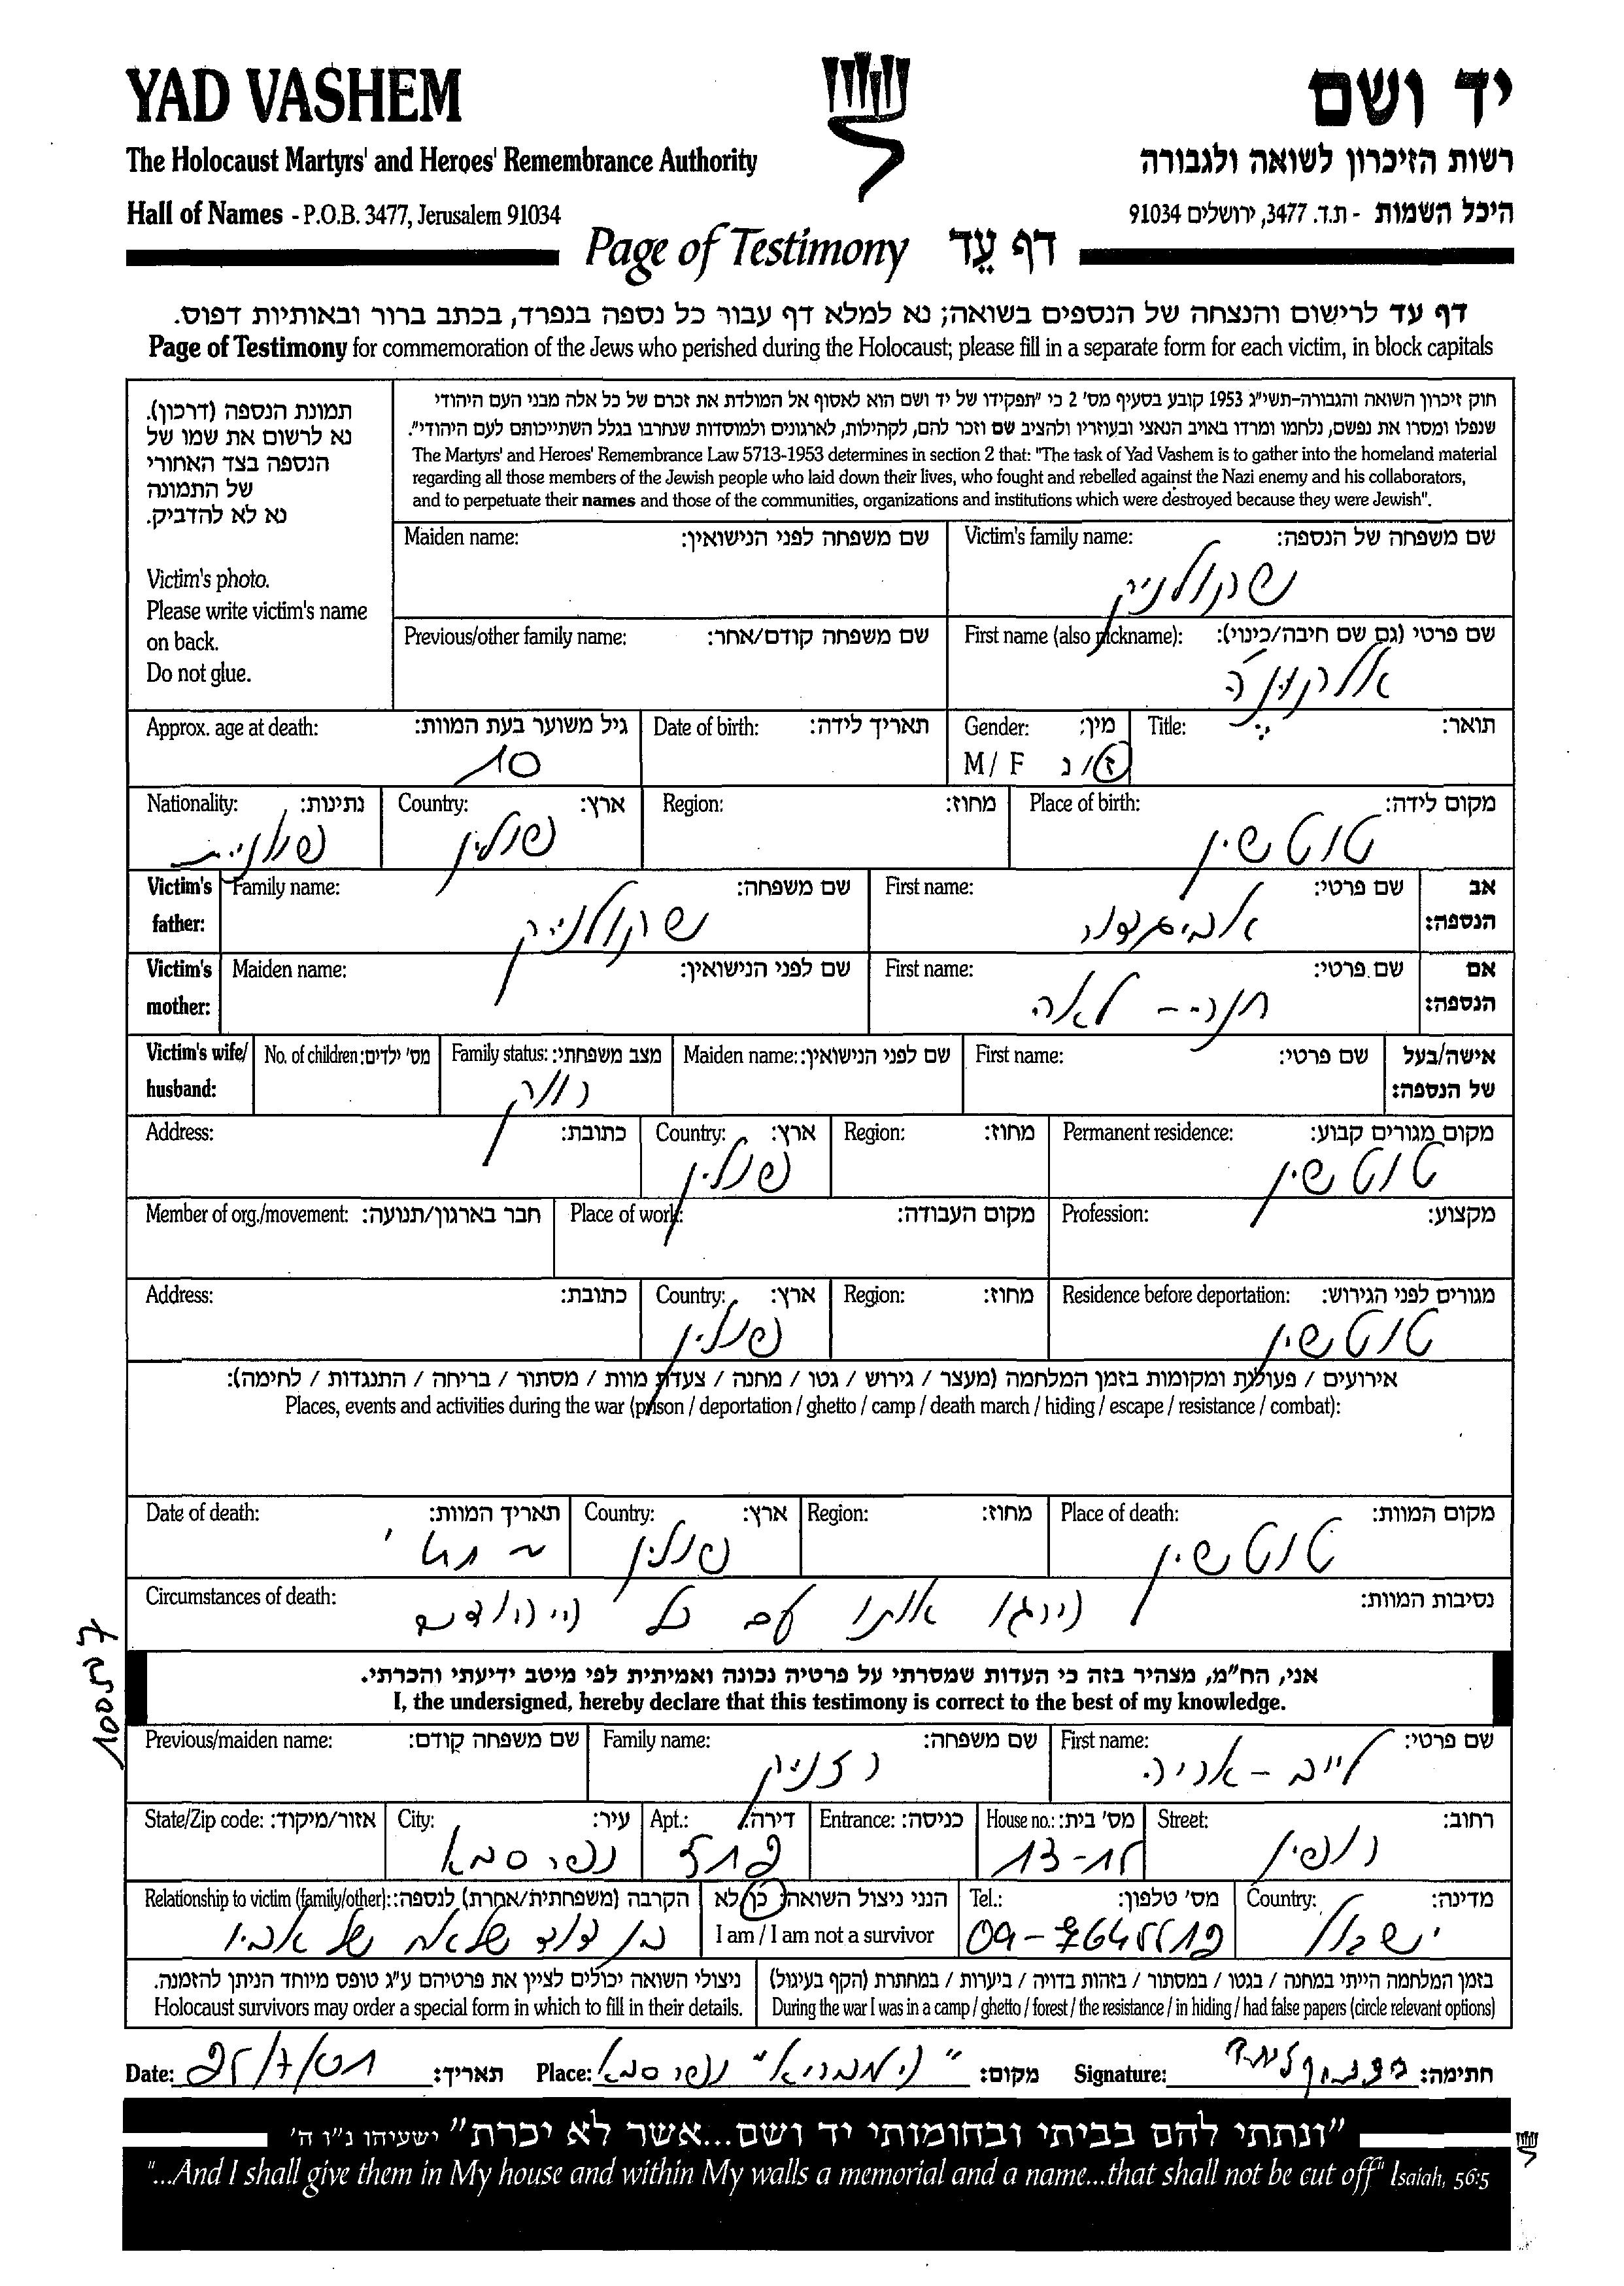 YAD VASHEM
יד ושם
The Holocaust Martyrs' and Heroes' Remembrance Authority
רשות הזיכרון לשואה ולגבורה
Hall of Names - P.O.B. 3477, Jerusalem 91034
היכל השמות - ת.ד. 3477, ירושלים 91034
Page of Testimony דף עֵד
דף עד לרישום והנצחה של הנספים בשואה; נא למלא דף עבור כל נספה בנפרד, בכתב ברור ובאותיות דפוס.
Page of Testimony for commemoration of the Jews who perished during the Holocaust; please fill in a separate form for each victim, in block capitals
תמונת הנספה (דרכון).
נא לרשום את שמו של
הנספה בצד האחורי
של התמונה
נא לא להדביק.
Victim's photo.
Please write victim's name
on back.
Do not glue.
חוק זיכרון השואה והגבורה-תשי"ג 1953 קובע בסעיף מס' 2 כי "תפקידו של יד ושם הוא לאסוף אל המולדת את זכרם של כל אלה מבני העם היהודי
שנפלו ומסרו את נפשם, נלחמו ומרדו באויב הנאצי ובעוזריו ולהציב שם וזכר להם, לקהילות, לארגונים ולמוסדות שנחרבו בגלל השתייכותם לעם היהודי".
The Martyrs' and Heroes' Remembrance Law 5713-1953 determines in section 2 that: "The task of Yad Vashem is to gather into the homeland material
regarding all those members of the Jewish people who laid down their lives, who fought and rebelled against the Nazi enemy and his collaborators,
and to perpetuate their names and those of the communities, organizations and institutions which were destroyed because they were Jewish".
Victim's family name: שם משפחה של הנספה:
שקולניק
Maiden name: שם משפחה לפני הנישואין:
First name (also nickname): שם פרטי (גם שם חיבה/כינוי):
אלקונה
Previous/other family name: שם משפחה קודם/אחר:
Title: תואר:
Gender: מין:
M / F ז/נ
Date of birth: תאריך לידה:
Approx. age at death: גיל משוער בעת המוות:
10
Place of birth: מקום לידה:
טוטשין
Region: מחוז:
Country: ארץ:
פולין
Nationality: נתינות:
פולנית
Victim's father: אב הנספה:
First name: שם פרטי:
אביגדור
Family name: שם משפחה:
שקולניק
Victim's mother: אם הנספה:
First name: שם פרטי:
חנה - לאה
Maiden name: שם לפני הנישואין:
Victim's wife/husband: אישה/בעל של הנספה:
First name: שם פרטי:
Maiden name: שם לפני הנישואין:
Family status: מצב משפחתי:
רווק
No. of children: מס' ילדים:
Permanent residence: מקום מגורים קבוע:
טוטשין
Region: מחוז:
Country: ארץ:
פולין
Address: כתובת:
Profession: מקצוע:
Place of work: מקום העבודה:
Member of org./movement: חבר בארגון/תנועה:
Residence before deportation: מגורים לפני הגירוש:
טוטשין
Region: מחוז:
Country: ארץ:
פולין
Address: כתובת:
אירועים / פעולות ומקומות בזמן המלחמה (מעצר / גירוש / גטו / מחנה / צעדת מוות / מסתור / בריחה / התנגדות / לחימה):
Places, events and activities during the war (prison / deportation / ghetto / camp / death march / hiding / escape / resistance / combat):
Place of death: מקום המוות:
טוטשין
Region: מחוז:
Country: ארץ:
פולין
Date of death: תאריך המוות:
Circumstances of death: נסיבות המוות:
הרגו אותו עם כל היהודים
אני, הח"מ, מצהיר בזה כי העדות שמסרתי על פרטיה נכונה ואמיתית לפי מיטב ידיעתי והכרתי.
I, the undersigned, hereby declare that this testimony is correct to the best of my knowledge.
First name: שם פרטי:
לייב - אריה
Family name: שם משפחה:
רזניק
Previous/maiden name: שם משפחה קודם:
Street: רחוב:
רופין
House no.: מס' בית:
Entrance: כניסה:
Apt.: דירה:
City: עיר:
כפר סבא
State/Zip code: אזור/מיקוד:
Country: מדינה:
ישראל
Tel.: מס' טלפון:
הנני ניצול השואה: כן/לא
I am / I am not a survivor
Relationship to victim (family/other): הקרבה (משפחתית/אחרת) לנספה:
בן דוד של אבא של אביו
בזמן המלחמה הייתי במחנה / בגטו / במסתור / בזהות בדויה / ביערות / במחתרת (הקף בעיגול)
During the war I was in a camp / ghetto / forest / the resistance / in hiding / had false papers (circle relevant options)
ניצולי השואה יכולים לציין את פרטיהם ע"ג טופס מיוחד הניתן להזמנה.
Holocaust survivors may order a special form in which to fill in their details.
Signature: חתימה:
Place: מקום: כפר סבא
Date: תאריך:
"ונתתי להם בביתי ובחומותי יד ושם...אשר לא יכרת" ישעיהו נ"ו ה'
"...And I shall give them in My house and within My walls a memorial and a name...that shall not be cut off" Isaiah, 56:5